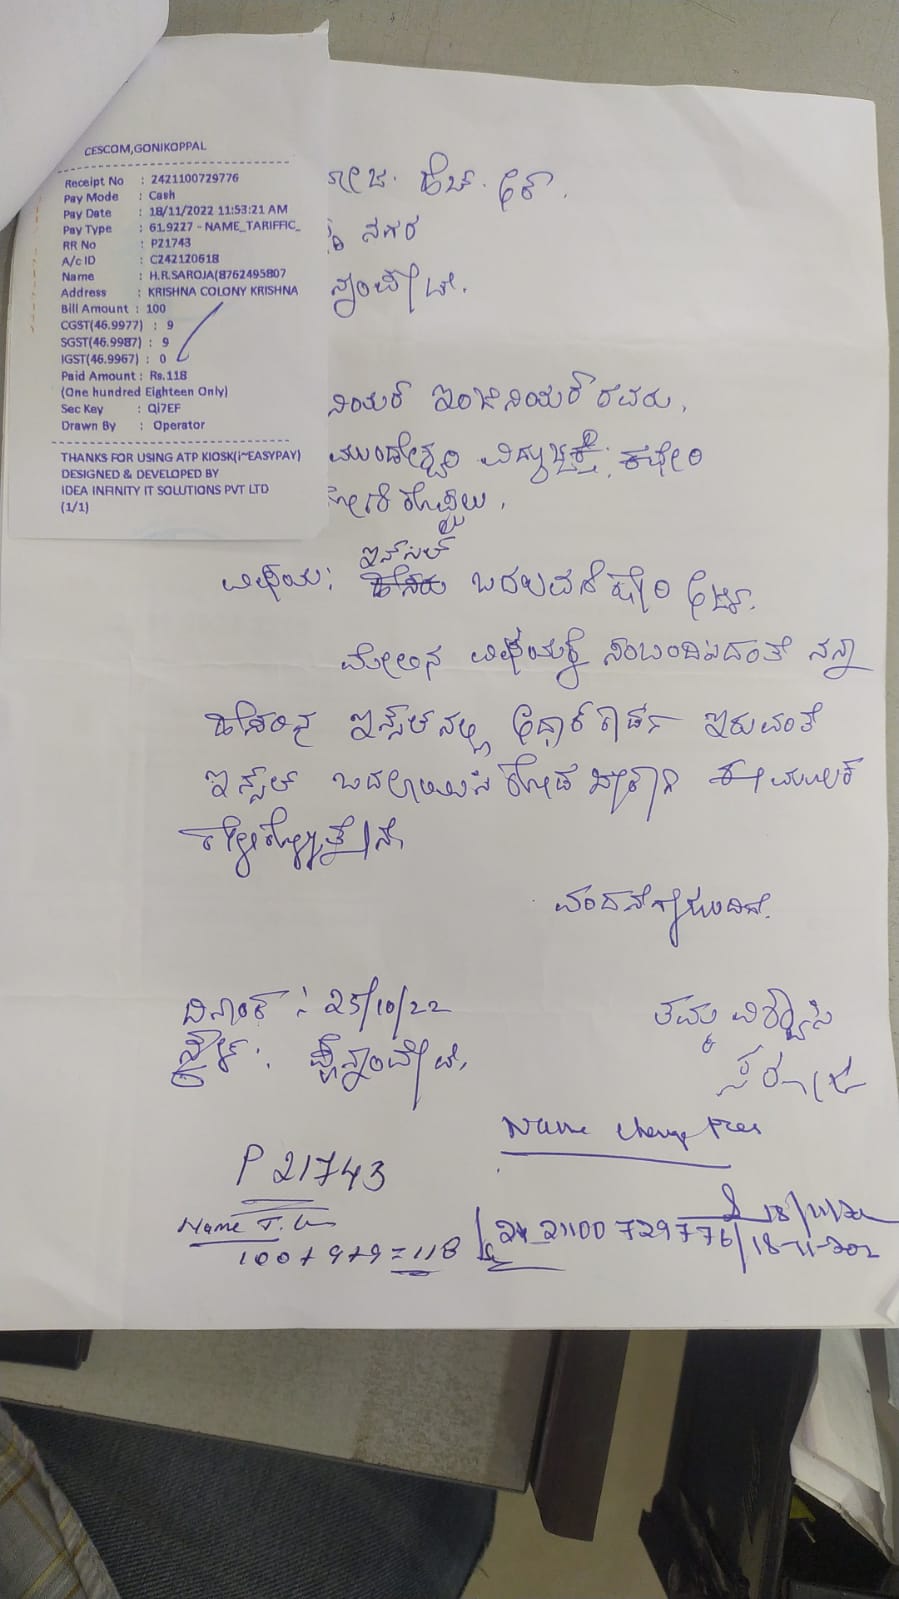 CESCOM,GONIKOPPAL
Receipt No : 2421100729776
Pay Mode : Cash
Pay Date : 18/11/2022 11:53:21 AM
Pay Type : 61.9227 - NAME_TARIFFIC_
RR No : P21743
A/c ID : C242120618
Name : H.R.SAROJA(8762495807
Address : KRISHNA COLONY KRISHNA
Bill Amount : 100
CGST(46.9977) : 9
SGST(46.9987) : 9
IGST(46.9967) : 0
Paid Amount : Rs.118
(One hundred Eighteen Only)
Sec Key : Qi7EF
Drawn By : Operator
THANKS FOR USING ATP KIOSK(i~EASYPAY)
DESIGNED & DEVELOPED BY
IDEA INFINITY IT SOLUTIONS PVT LTD
(1/1)
ಹೆಚ್. ಆರ್.
ನಗರ
ಇಂಜಿನಿಯರ್ ರವರು,
ಚಾಮುಂಡೇಶ್ವರಿ ವಿದ್ಯುಚ್ಛಕ್ತಿ ಕಛೇರಿ
ಇನ್ಸಿಲ್
ವಿಷಯ: ಹೆಸರು ಬದಲಾವಣೆ ಕೋರಿ ಅರ್ಜಿ.
ಮೇಲಿನ ವಿಷಯಕ್ಕೆ ಸಂಬಂಧಿಸಿದಂತೆ ನನ್ನ
ಹೆಸರಿನ ಇನ್ಸಿಲ್ ನಲ್ಲಿ ಆಧಾರ್ ಕಾರ್ಡ್ ಇರುವಂತೆ
ಇನ್ಸಿಲ್ ಬದಲಾಯಿಸಿ ಕೊಡಬೇಕಾಗಿ ಈ ಮೂಲಕ
ಕೇಳಿಕೊಳ್ಳುತ್ತೇನೆ.
ವಂದನೆಗಳೊಂದಿಗೆ.
ದಿನಾಂಕ : 25/10/22
ಸ್ಥಳ : ಪೊನ್ನಂಪೇಟೆ.
ತಮ್ಮ ವಿಶ್ವಾಸಿ
ಸರೋಜ
Name change Fees
P 21743
18/11/22
Name T.
100 + 9 + 9 = 118
2421100729776/18-11-202